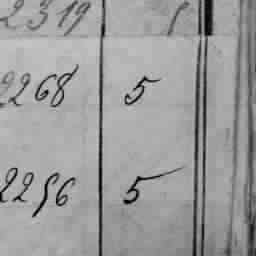 2319
2268 5
2256 5